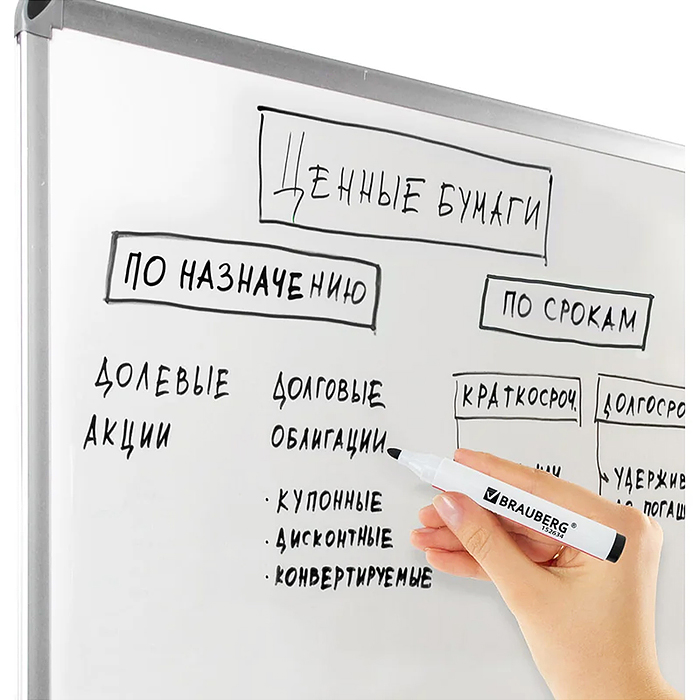 ЦЕННЫЕ БУМАГИ
ПО НАЗНАЧЕНИЮ
ПО СРОКАМ
ДОЛЕВЫЕ
АКЦИИ
ДОЛГОВЫЕ
ОБЛИГАЦИИ
· КУПОННЫЕ
· ДИСКОНТНЫЕ
· КОНВЕРТИРУЕМЫЕ
КРАТКОСРОЧ.
ДОЛГОСРО
УДЕРЖИВ
ДО ПОГАШ
BRAUBERG®
152634